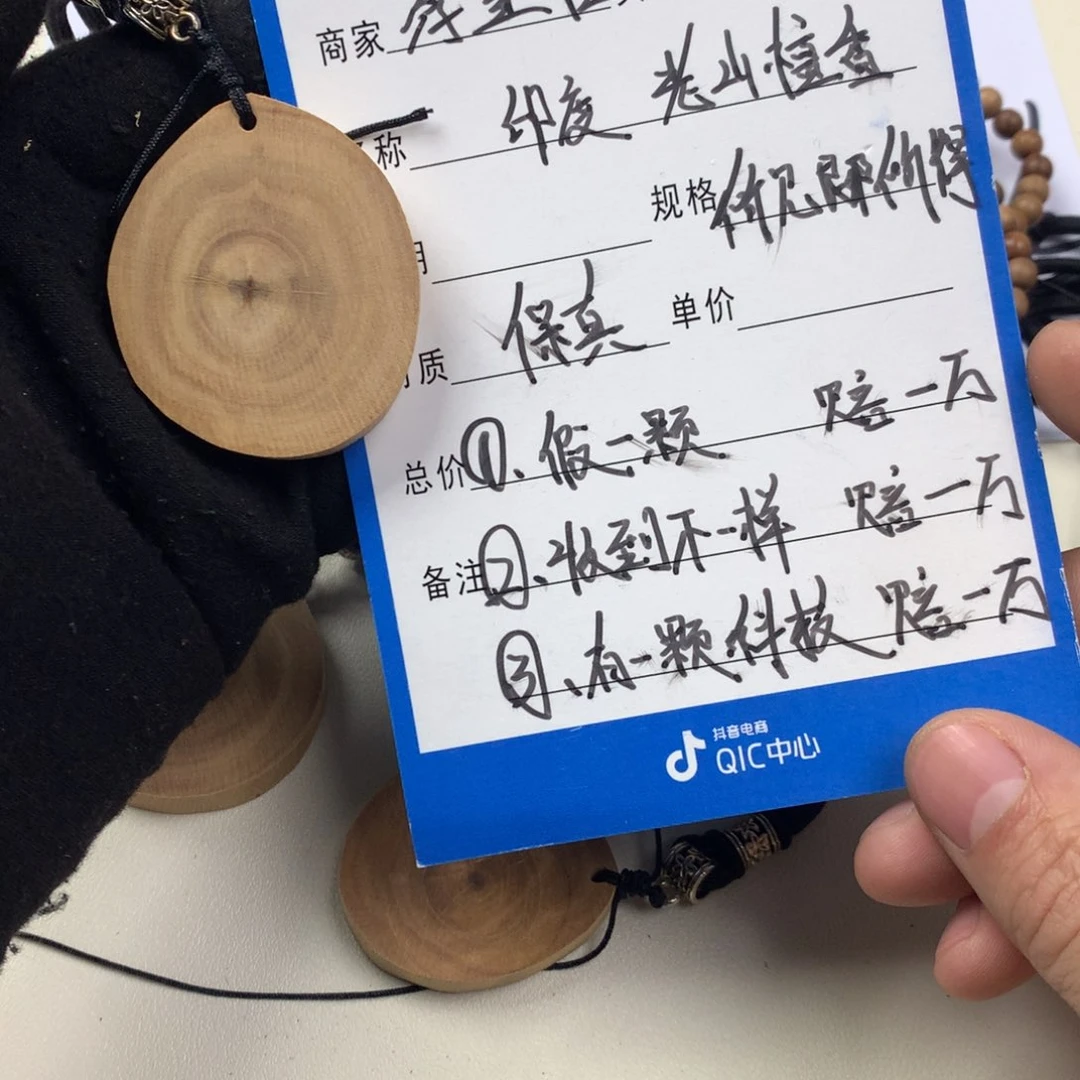 商家
称 印度 老山檀香
规格 所见即所得
质 保真 单价
总价 ①、假一颗 赔一万
备注 ②、收到不一样 赔一万
③、有一颗科技 赔一万
抖音电商
QIC中心